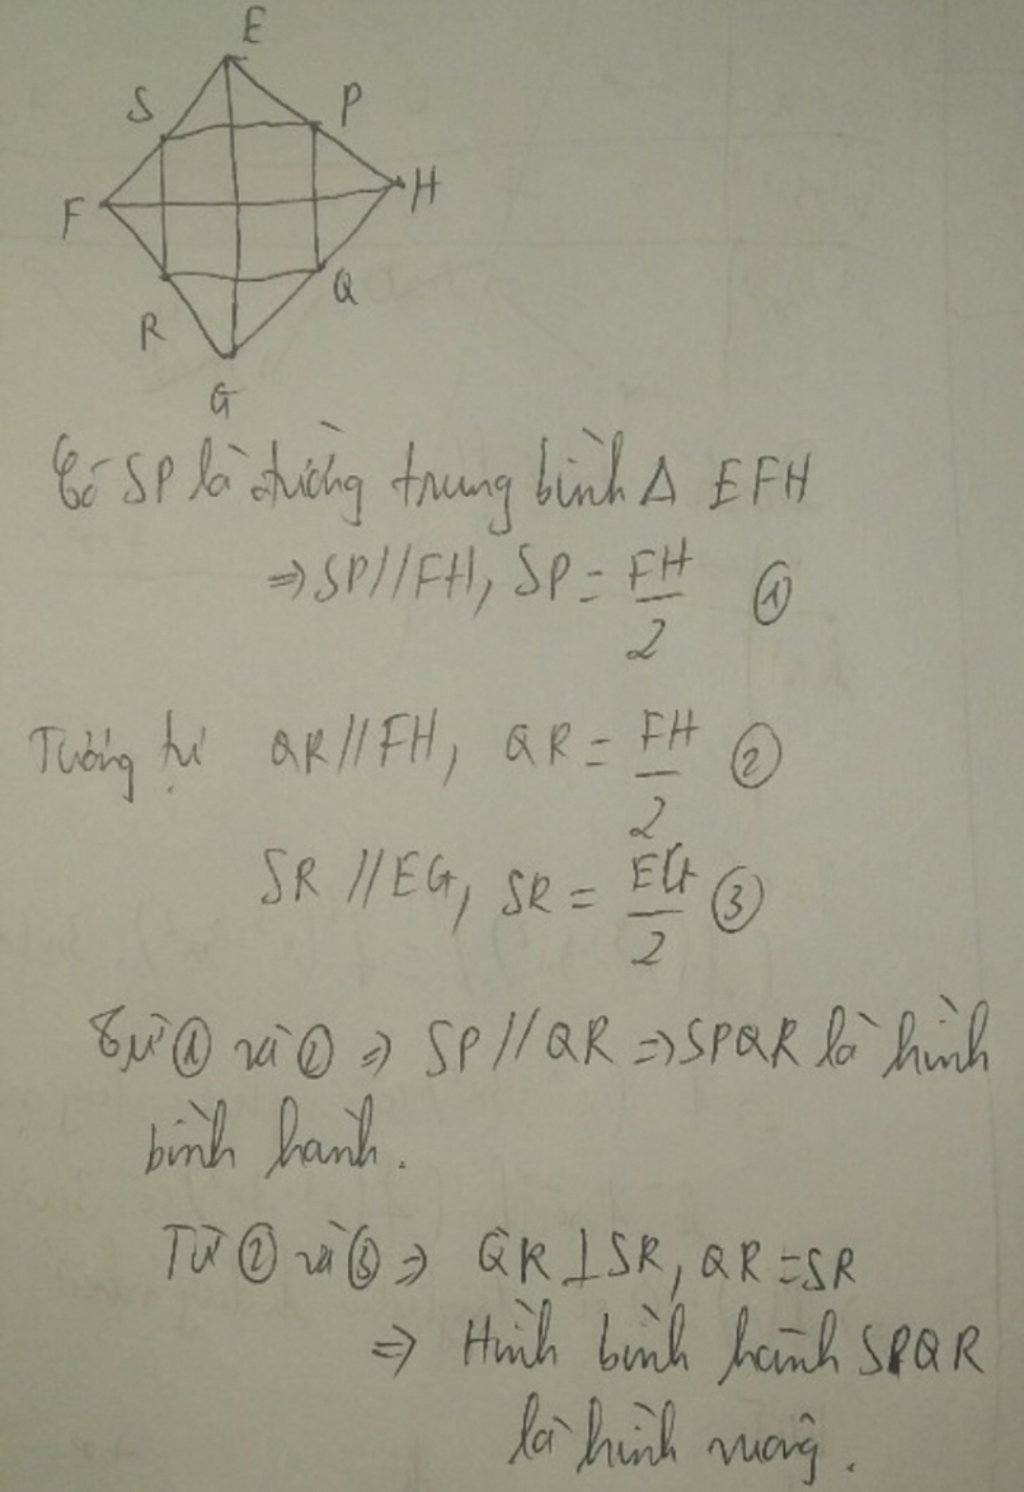 E
S
P
F
H
R
Q
G
Có SP là đường trung bình Δ EFH
⇒ SP // FH, SP = FH/2 ①
Tương tự QR // FH, QR = FH/2 ②
SR // EG, SR = EG/2 ③
Từ ① và ② ⇒ SP // QR ⇒ SPQR là hình
bình hành.
Từ ② và ③ ⇒ QR ⊥ SR, QR = SR
⇒ Hình bình hành SPQR
là hình vuông.